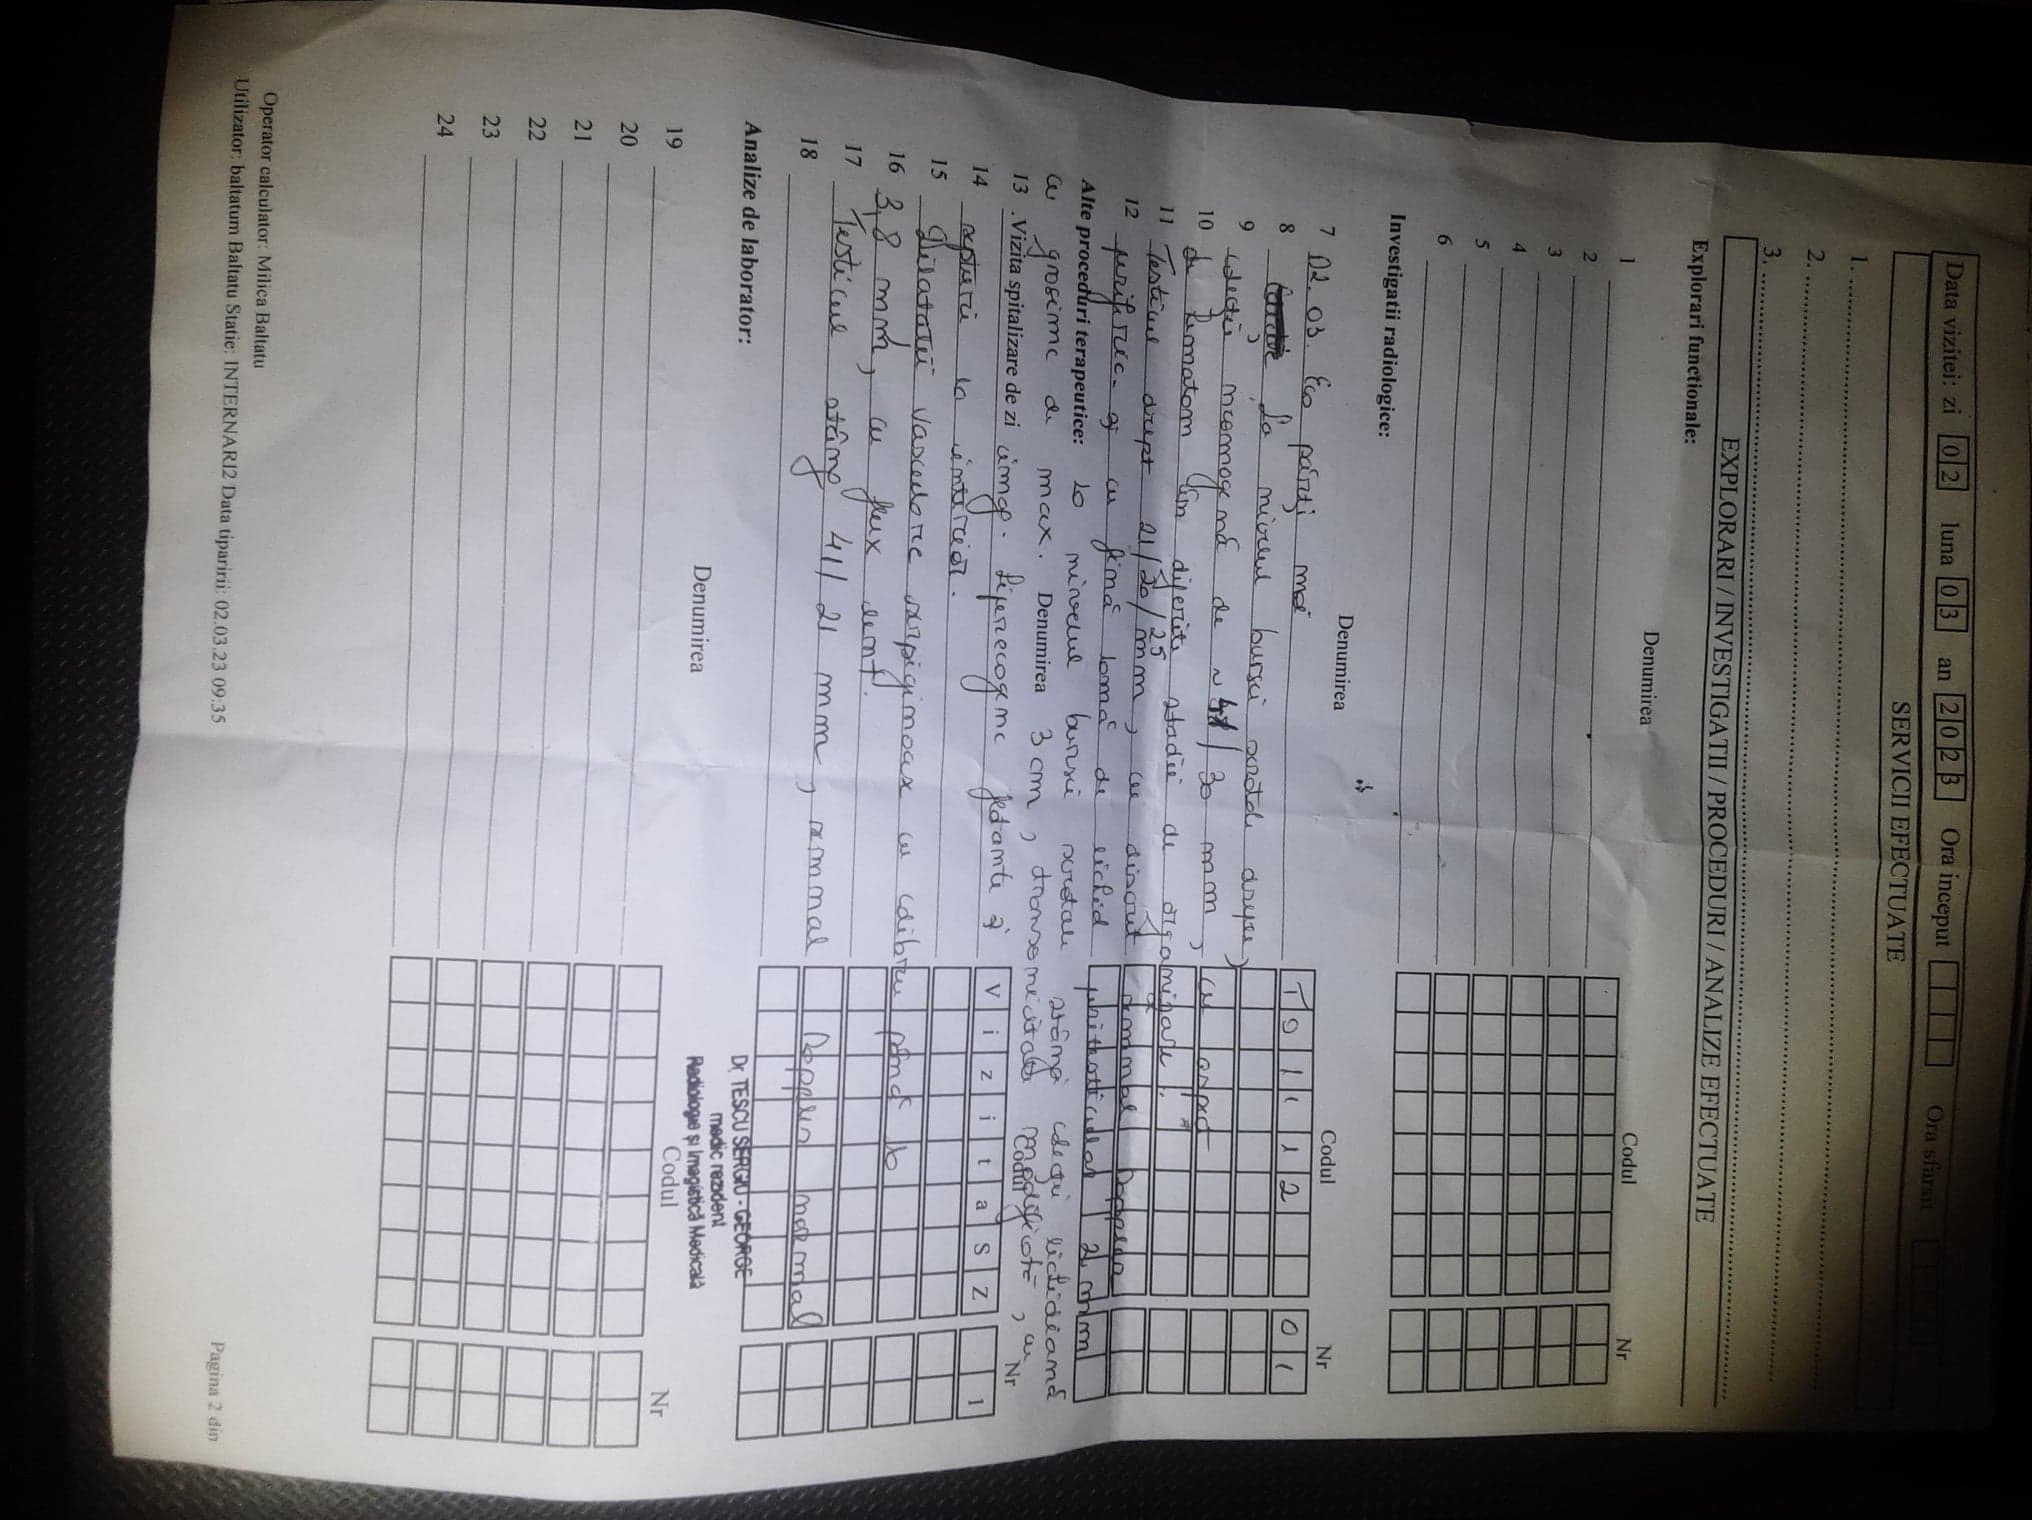 Data vizitei: zi 02 luna 03 an 2023 Ora inceput Ora sfarsit
SERVICII EFECTUATE
1.
2.
3.
EXPLORARI / INVESTIGATII / PROCEDURI / ANALIZE EFECTUATE
Explorari functionale:
Denumirea Codul Nr
1
2
3
4
5
6
Investigatii radiologice:
Denumirea Codul Nr
7 02.03. Eco părți moi
8 La nivelul bursei scrotale drepte, 01
9 colecție neomogenă de ~ /30 mm, cu aspect
10 de hematom în diferite stadii de organizare.
11 Testicul drept 21/30/25 mm, cu discret semnal Doppler
12 periferic și cu fină lamă de lichid peritesticular 2 mm
Alte proceduri terapeutice: La nivelul bursei scrotale stângi colecție lichidiană
cu grosime de max. 3 cm, transonică, cu
Denumirea Codul Nr
13 .Vizita spitalizare de zi VizitaSZ 1
imag. hiperecogene flotante și
14 septuri la interior.
15 Dilatații vasculare serpiginoase cu calibru până la
16 3,8 mm, cu flux lent.
17 Testicul stâng 41/21 mm, semnal Doppler normal
18
Analize de laborator:
Dr. TESCU SERGIU - GEORGE
medic rezident
Radiologie și Imagistică Medicală
Denumirea Codul Nr
19
20
21
22
23
24
Operator calculator: Milica Baltatu
Utilizator: baltatum Baltatu Statie: INTERNARI2 Data tiparirii: 02.03.23 09:35 Pagina 2 din